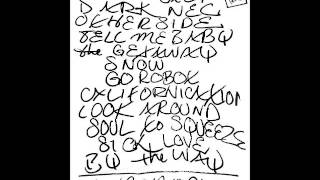 DARK NEC
OTHERSIDE
TELL ME BABY
the GETAWAY
SNOW
GO ROBOT
CALIFORNICATION
LOOK AROUND
SOUL to SQUEEZE
SICK LOVE
BY the WAY